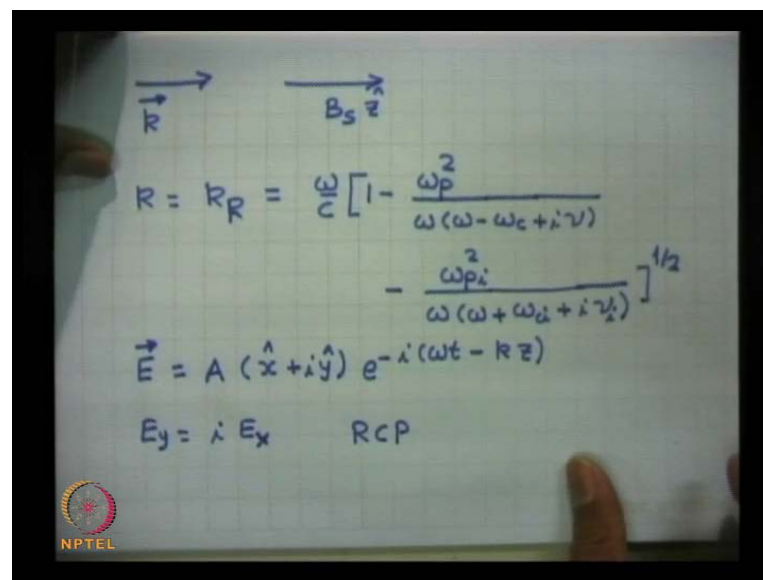 k⃗ B_s ẑ
k = k_R = ω/c [1 - ω_p² / ω(ω - ω_c + iν)
- ω_pi² / ω(ω + ω_ci + iν_i)]^1/2
E⃗ = A (x̂ + iŷ) e^-i(ωt - kz)
E_y = i E_x RCP
NPTEL